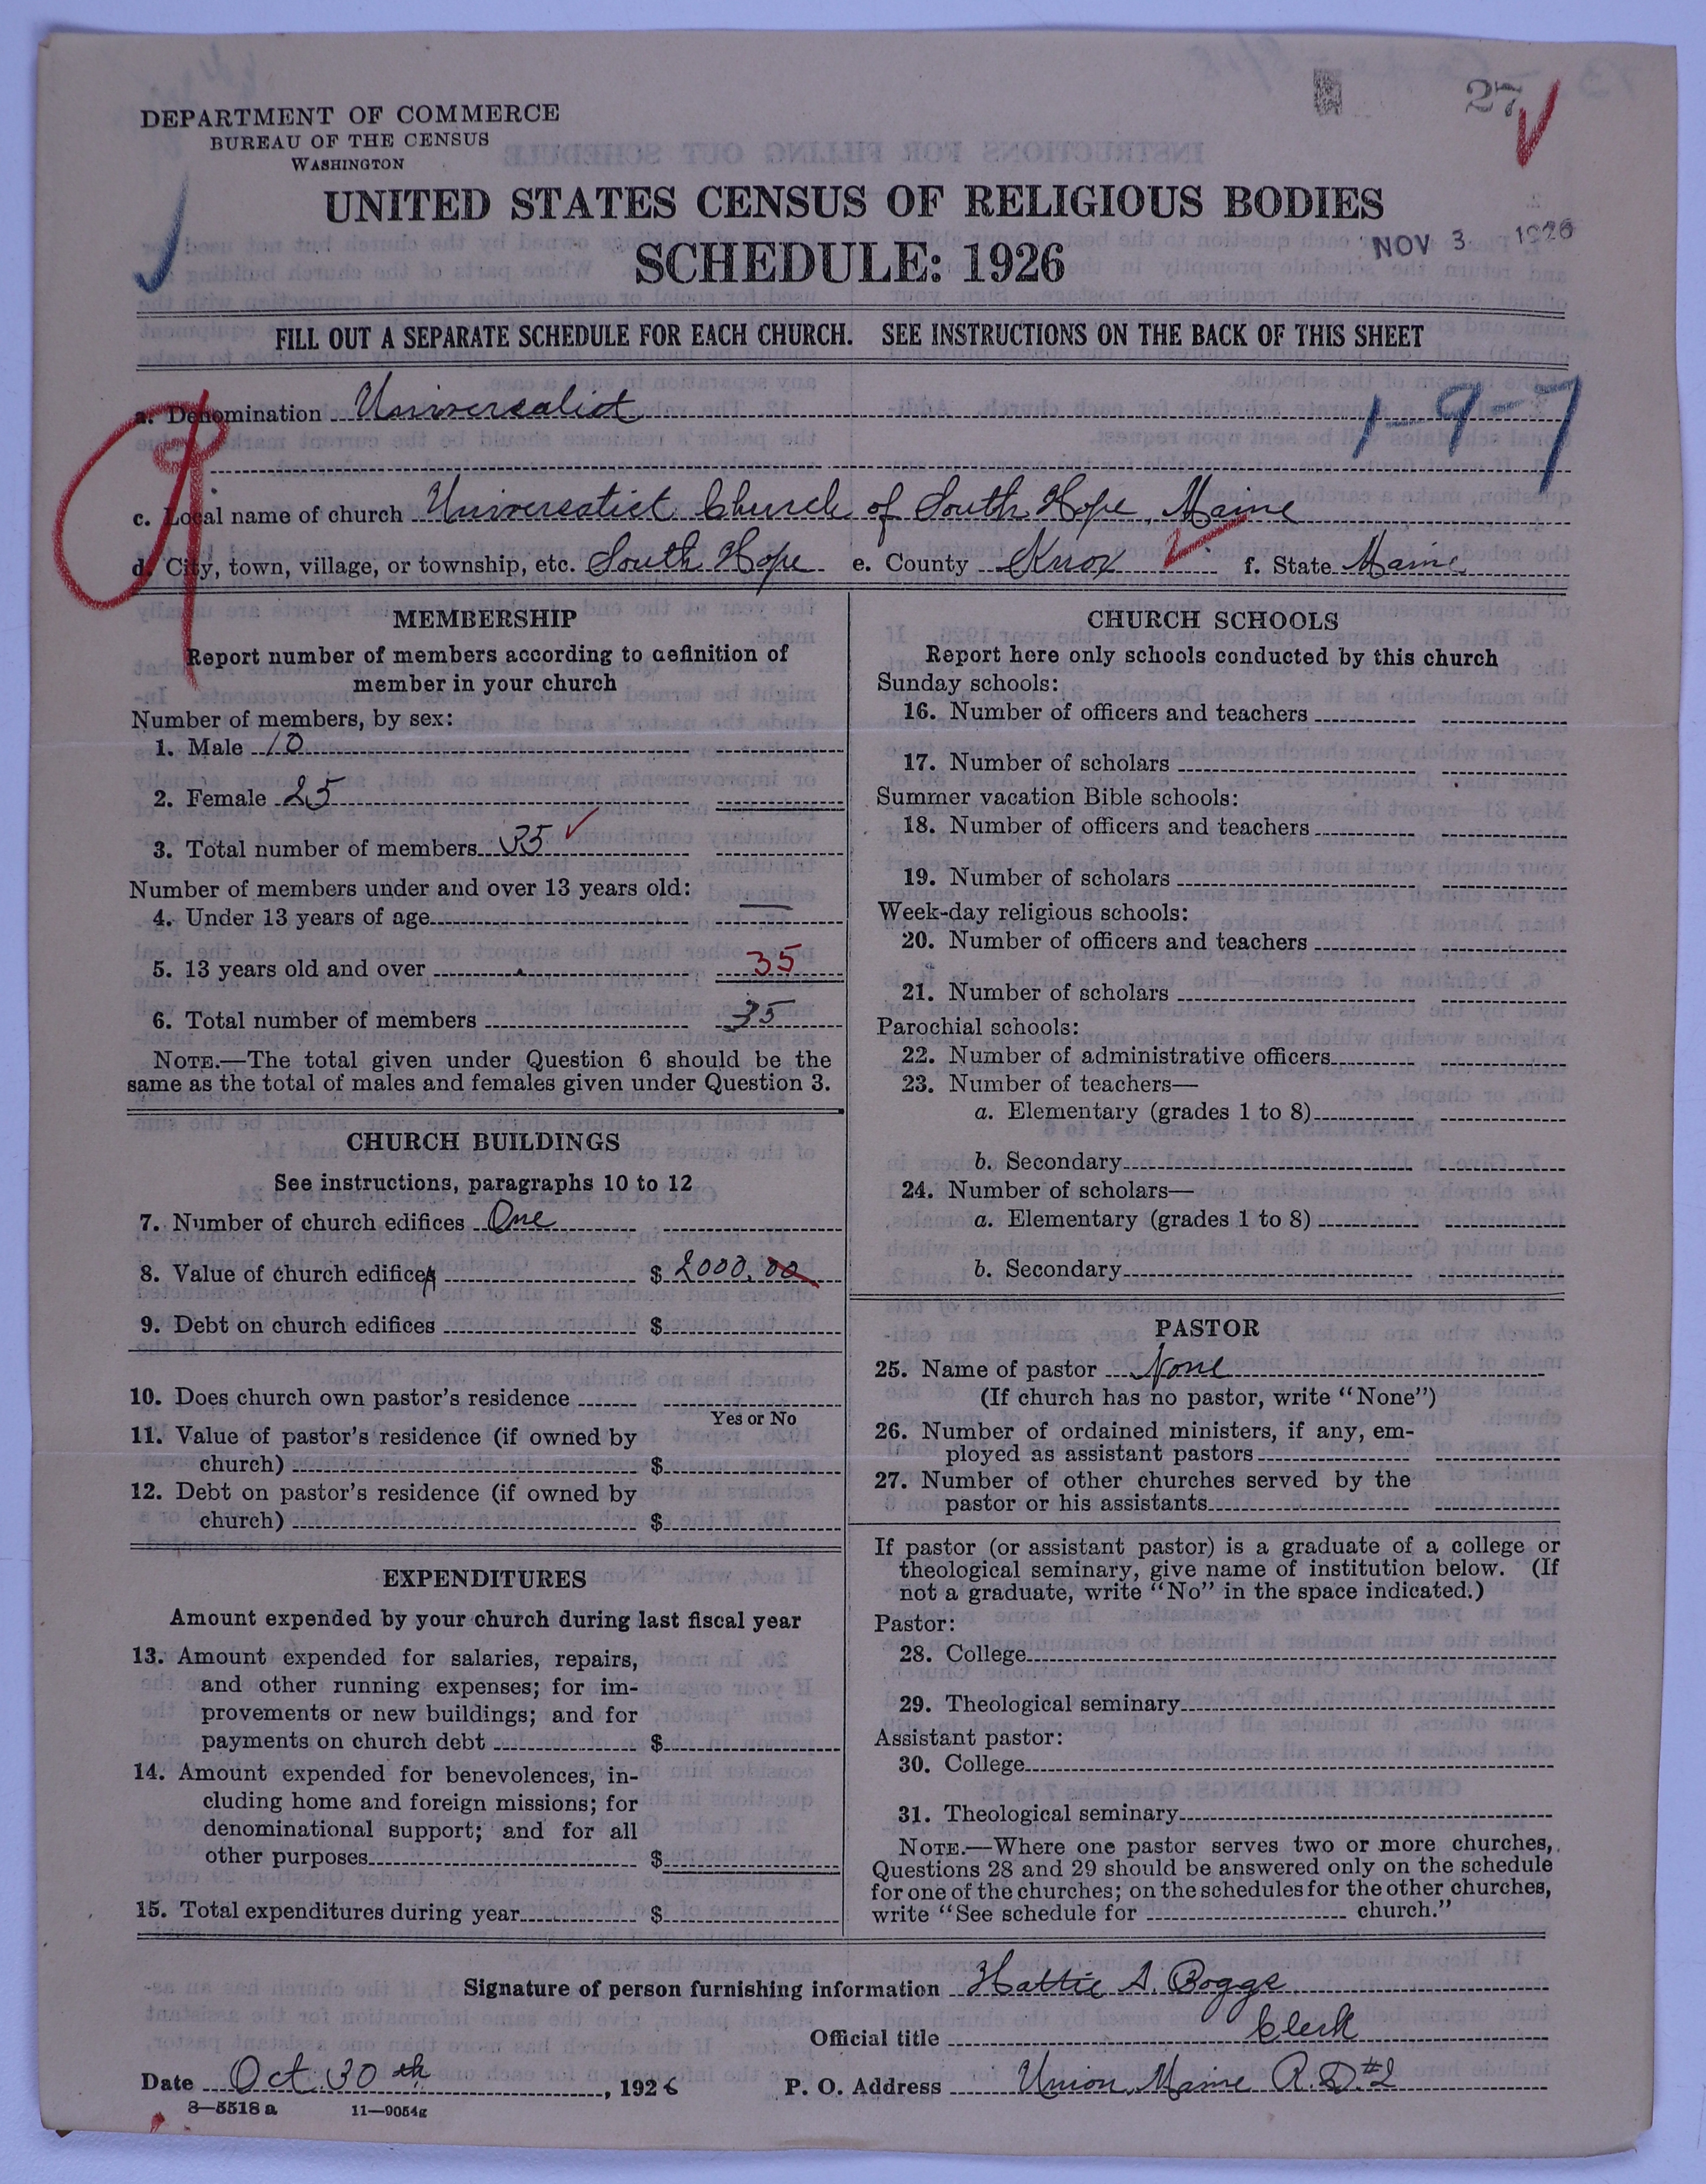 27
DEPARTMENT OF COMMERCE
BUREAU OF THE CENSUS
WASHINGTON
UNITED STATES CENSUS OF RELIGIOUS BODIES
SCHEDULE: 1926
NOV 3 1926
FILL OUT A SEPARATE SCHEDULE FOR EACH CHURCH. SEE INSTRUCTIONS ON THE BACK OF THIS SHEET
a. Denomination Universalist
1-9-7
c. Local name of church Universalist Church of South Hope, Maine
d. City, town, village, or township, etc. South Hope e. County Knox f. State Maine
MEMBERSHIP
Report number of members according to definition of
member in your church
Number of members, by sex:
1. Male 10
2. Female 25
3. Total number of members 35
Number of members under and over 13 years old:
4. Under 13 years of age —
5. 13 years old and over 35
6. Total number of members 35
NOTE.—The total given under Question 6 should be the
same as the total of males and females given under Question 3.
CHURCH BUILDINGS
See instructions, paragraphs 10 to 12
7. Number of church edifices One
8. Value of church edifices $ 2000.00
9. Debt on church edifices $
10. Does church own pastor's residence
Yes or No
11. Value of pastor's residence (if owned by
church) $
12. Debt on pastor's residence (if owned by
church) $
EXPENDITURES
Amount expended by your church during last fiscal year
13. Amount expended for salaries, repairs,
and other running expenses; for im-
provements or new buildings; and for
payments on church debt $
14. Amount expended for benevolences, in-
cluding home and foreign missions; for
denominational support; and for all
other purposes $
15. Total expenditures during year $
CHURCH SCHOOLS
Report here only schools conducted by this church
Sunday schools:
16. Number of officers and teachers
17. Number of scholars
Summer vacation Bible schools:
18. Number of officers and teachers
19. Number of scholars
Week-day religious schools:
20. Number of officers and teachers
21. Number of scholars
Parochial schools:
22. Number of administrative officers
23. Number of teachers—
a. Elementary (grades 1 to 8)
b. Secondary
24. Number of scholars—
a. Elementary (grades 1 to 8)
b. Secondary
PASTOR
25. Name of pastor None
(If church has no pastor, write "None")
26. Number of ordained ministers, if any, em-
ployed as assistant pastors
27. Number of other churches served by the
pastor or his assistants
If pastor (or assistant pastor) is a graduate of a college or
theological seminary, give name of institution below. (If
not a graduate, write "No" in the space indicated.)
Pastor:
28. College
29. Theological seminary
Assistant pastor:
30. College
31. Theological seminary
NOTE.—Where one pastor serves two or more churches,
Questions 28 and 29 should be answered only on the schedule
for one of the churches; on the schedules for the other churches,
write "See schedule for church."
Signature of person furnishing information Hattie A. Boggs
Official title Clerk
Date Oct. 30th, 1926 P. O. Address Union, Maine R.D.#2
8—5518 a 11—9054g